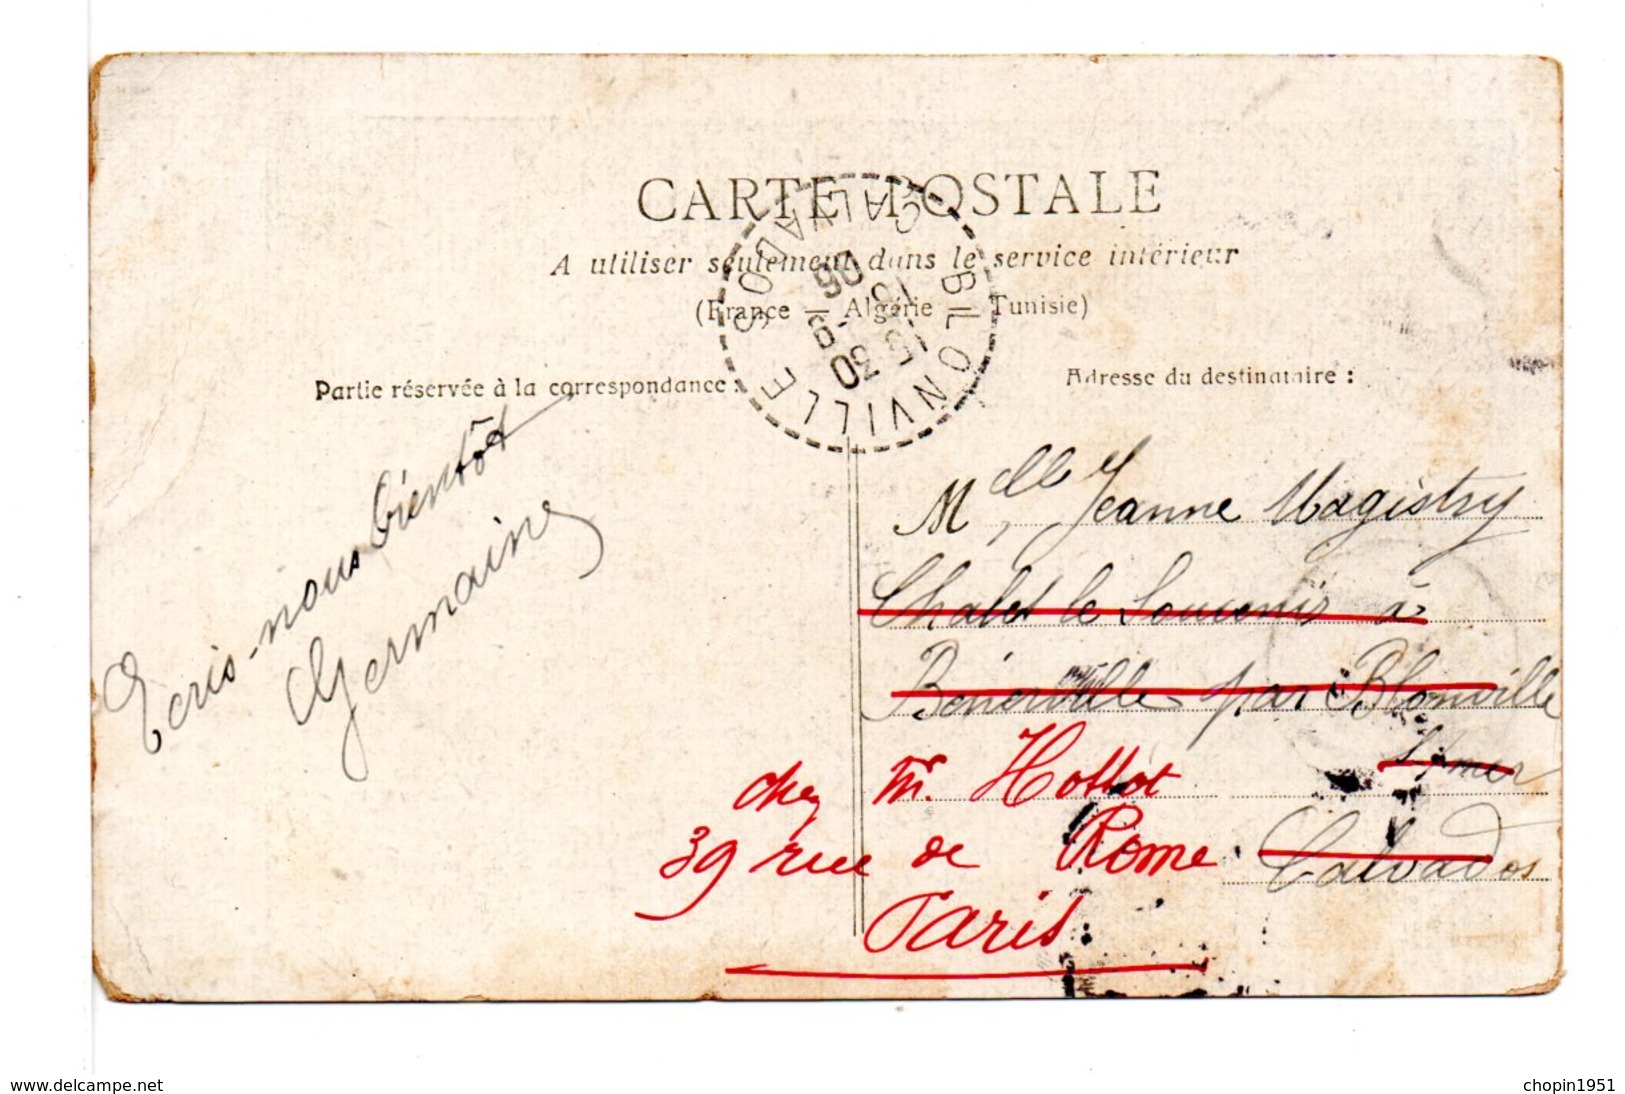 CARTE POSTALE
A utiliser seulement dans le service intérieur
(France — Algérie — Tunisie)
Partie réservée à la correspondance :
Adresse du destinataire :
BLONVILLE CALVADOS
Ecris-nous bientôt
Germaine
Mlle Jeanne Magistry
Chalet le Souvenir à
Bénerville par Blonville
s/mer
Calvados
chez Mr. Hottot
39 rue de Rome
Paris
www.delcampe.net
chopin1951